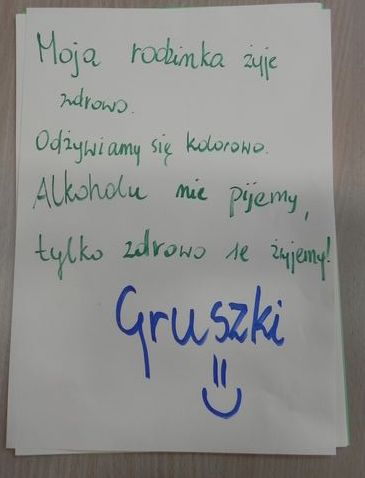 Moja rodzinka żyje
zdrowo.
Odżywiamy się kolorowo.
Alkoholu nie pijemy,
tylko zdrowo se żyjemy!
Gruszki